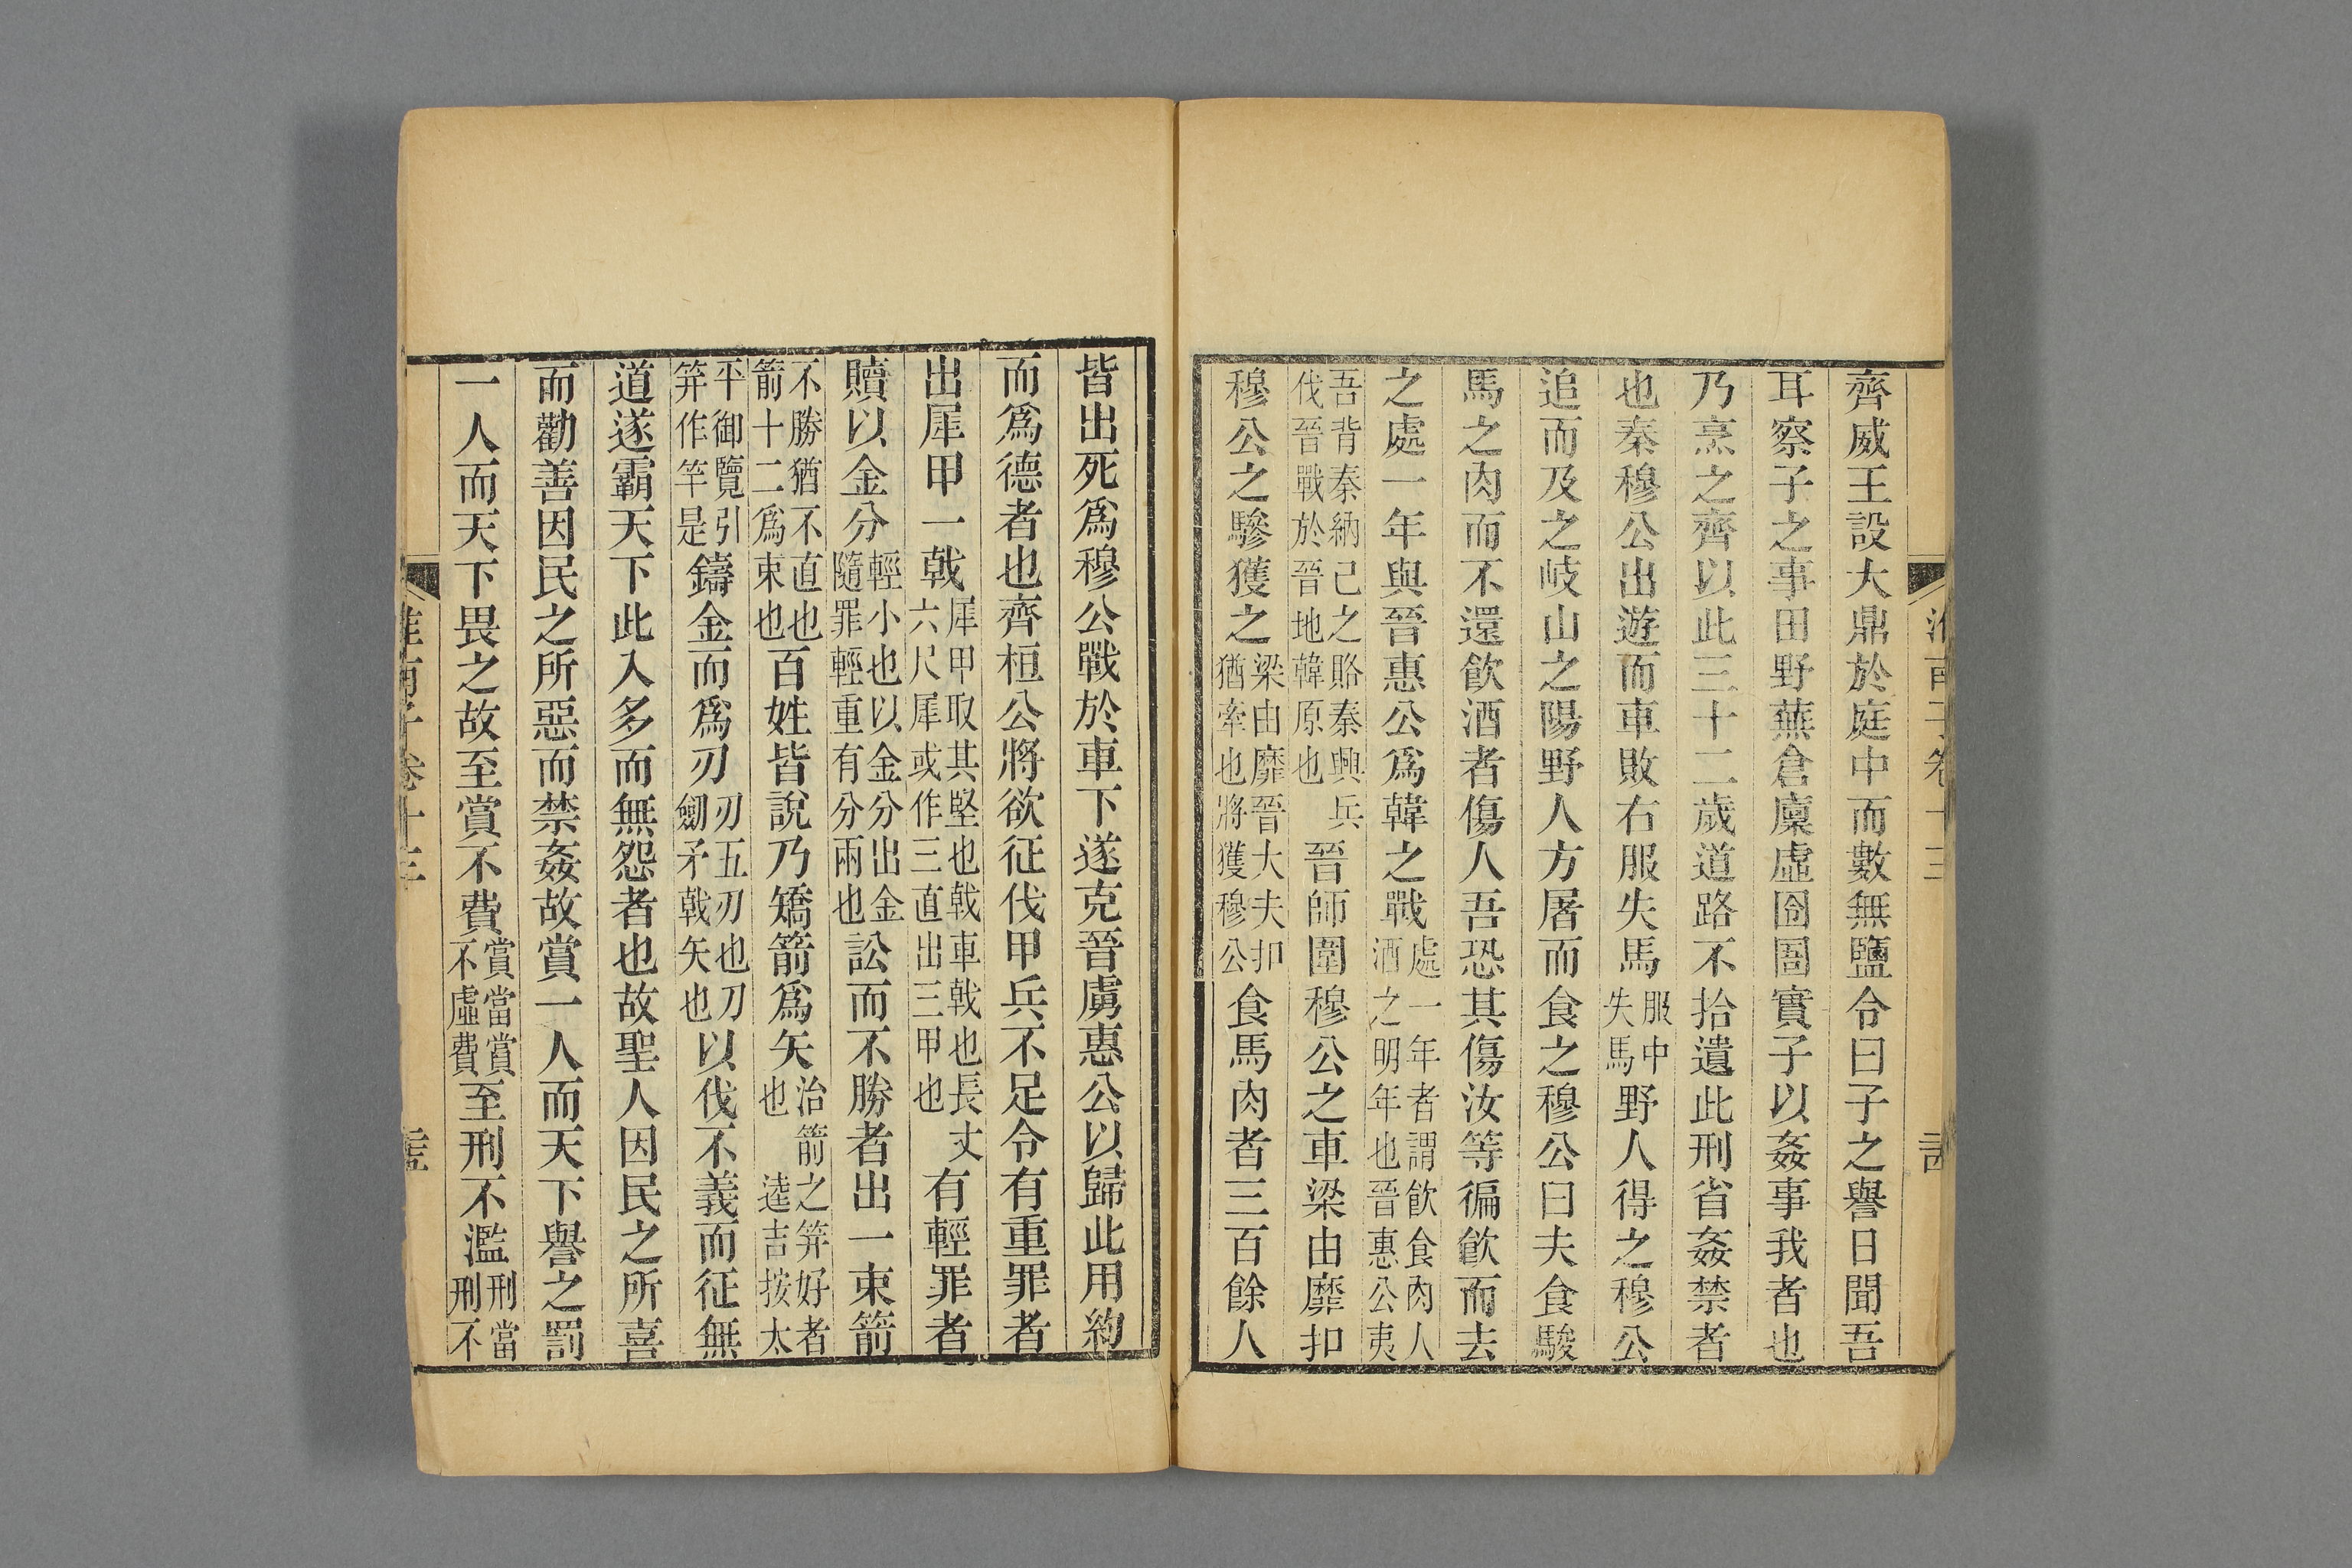 齊威王設大鼎於庭中而數無鹽令曰子之譽日聞吾
耳察子之事田野蕪倉廩虛囹圄實子以姦事我者也
乃烹之齊以此三十二歲道路不拾遺此刑省姦禁者
也秦穆公出遊而車敗右服失馬服中失馬野人得之穆公
追而及之岐山之陽野人方屠而食之穆公曰夫食駿
馬之肉而不還飲酒者傷人吾恐其傷汝等徧飲而去
之處一年與晉惠公爲韓之戰處一年者謂飲食肉人酒之明年也晉惠公夷
吾背秦納己之賂秦興兵伐晉戰於晉地韓原也晉師圍穆公之車梁由靡扣
穆公之驂獲之梁由靡晉大夫扣猶牽也將獲穆公食馬肉者三百餘人
皆出死爲穆公戰於車下遂克晉虜惠公以歸此用約
而爲德者也齊桓公將欲征伐甲兵不足令有重罪者
出犀甲一戟犀甲取其堅也戟車戟也長丈六尺犀或作三直出三甲也有輕罪者
贖以金分輕小也以金分出金隨罪輕重有分兩也訟而不勝者出一束箭
不勝猶不直也箭十二爲束也百姓皆說乃矯箭爲矢治箭之笄好者也逵吉按太
平御覽引笄作竿是鑄金而爲刃刃五刃也刀劒矛戟矢也以伐不義而征無
道遂霸天下此入多而無怨者也故聖人因民之所喜
而勸善因民之所惡而禁姦故賞一人而天下譽之罰
一人而天下畏之故至賞不費賞當賞不虛費至刑不濫刑當刑不
淮南子卷十三